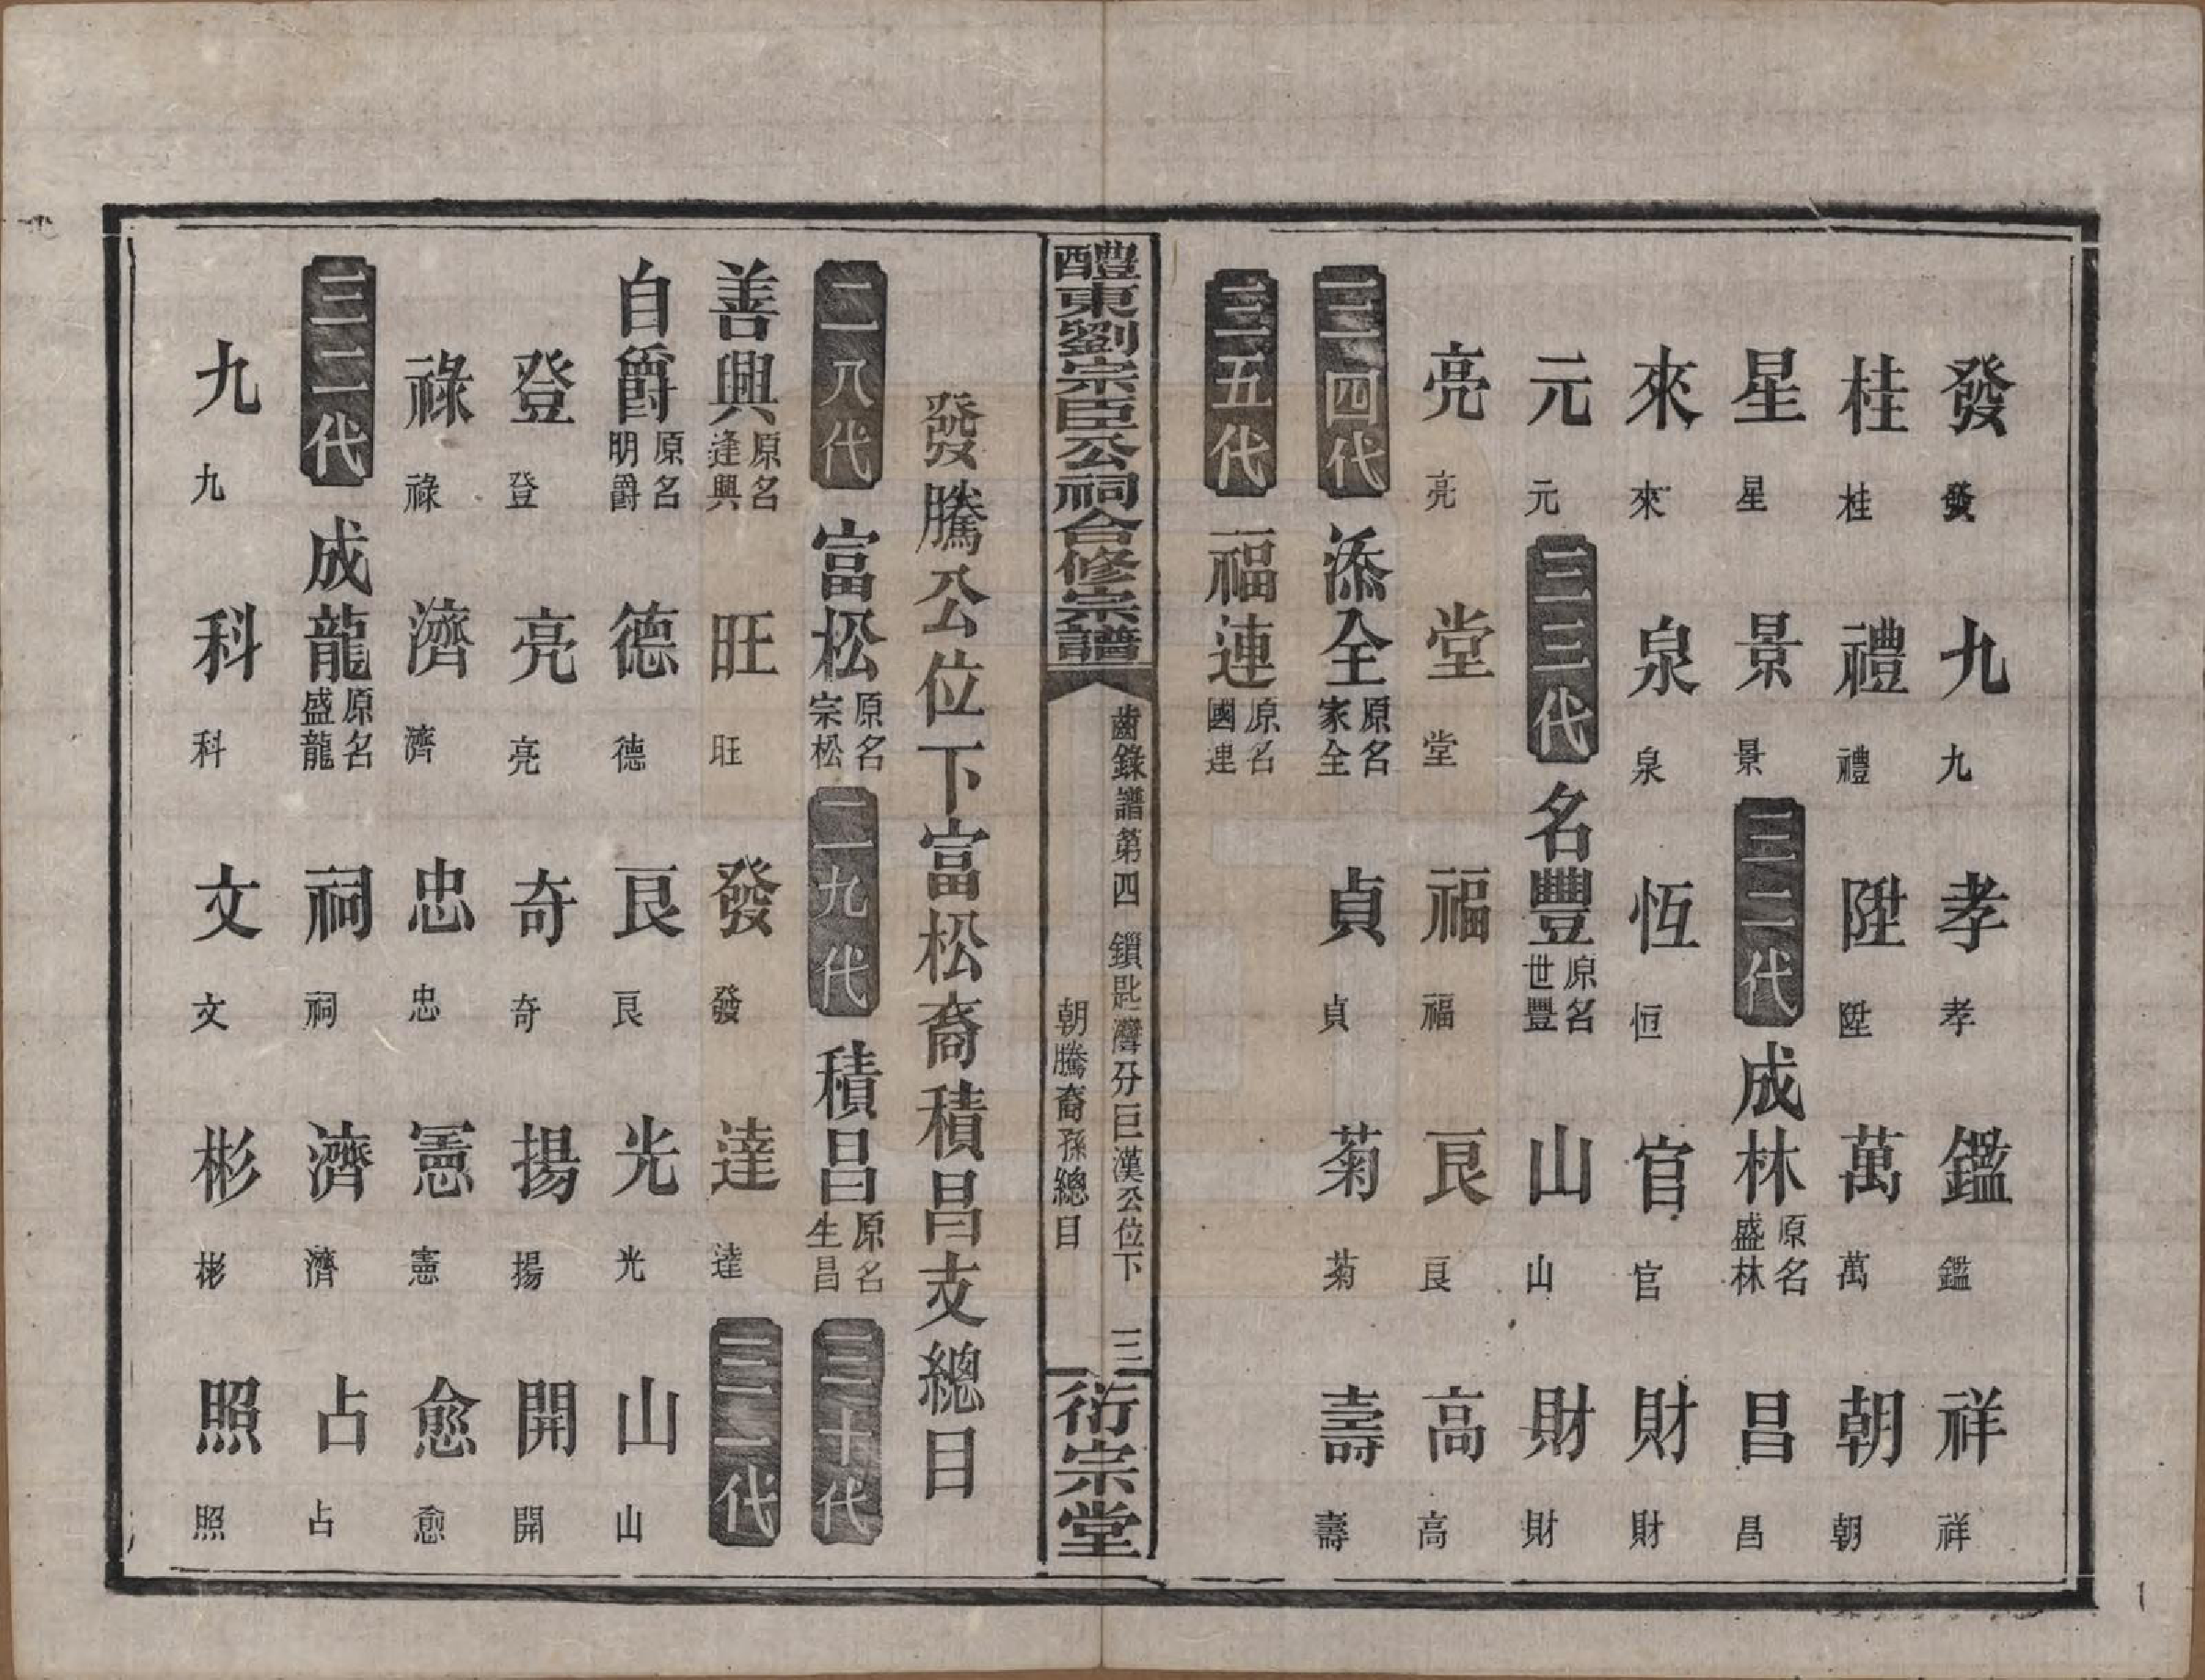 發 發 九 九 孝 孝 鑑 鑑 祥 祥
桂 桂 禮 禮 陞 陞 萬 萬 朝 朝
星 星 景 景 三二代 成林 原名盛林 昌 昌
來 來 泉 泉 恆 恒 官 官 財 財
元 元 三三代 名豐 原名世豐 山 山 財 財
亮 亮 堂 堂 福 福 良 良 高 高
三四代 添全 原名家全 貞 貞 菊 菊 壽 壽
三五代 福連 原名國連
醴東劉宗臣公祠合修宗譜
齒錄譜第四 鎖匙灣分巨漢公位下 三
朝騰裔孫總目
衍宗堂
發騰公位下富松裔積昌支總目
二八代 富松 原名宗松 二九代 積昌 原名生昌 三十代
善興 原名逢興 旺 旺 發 發 達 達 三一代
自爵 原名明爵 德 德 良 良 光 光 山 山
登 登 亮 亮 奇 奇 揚 揚 開 開
祿 祿 濟 濟 忠 忠 憲 憲 愈 愈
三二代 成龍 原名盛龍 祠 祠 濟 濟 占 占
九 九 科 科 文 文 彬 彬 照 照